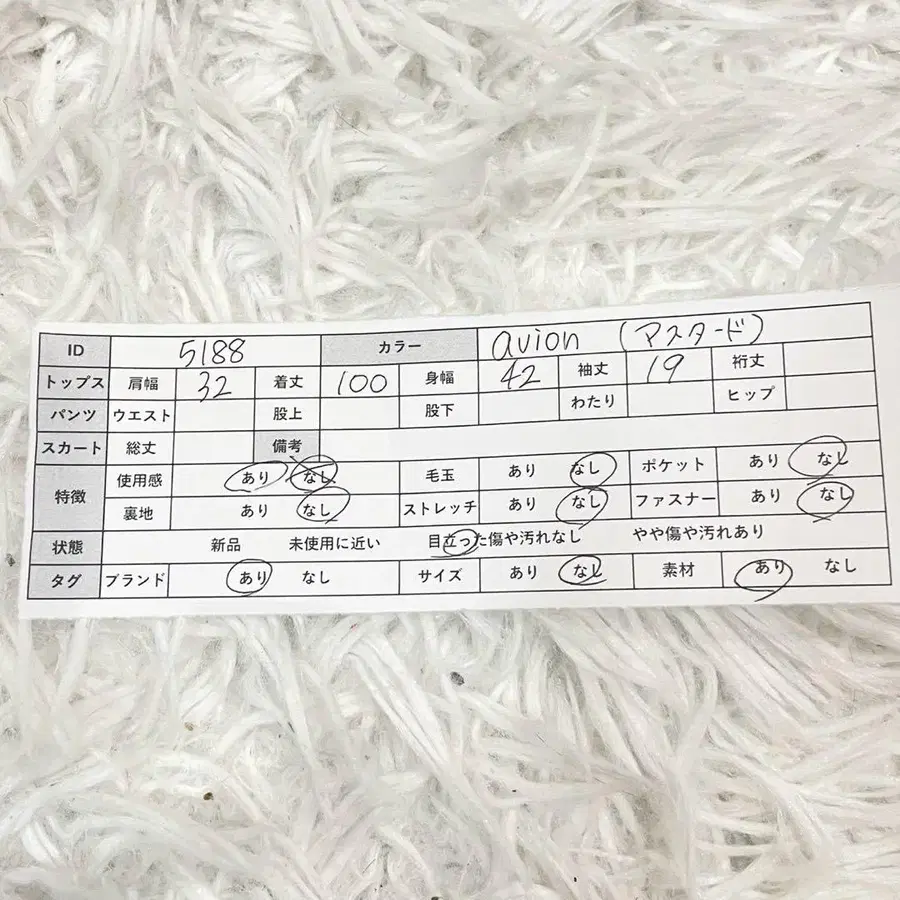 ID 5188 カラー avion (マスタード)
トップス 肩幅 32 着丈 100 身幅 42 袖丈 19 裄丈
パンツ ウエスト 股上 股下 わたり ヒップ
スカート 総丈 備考
特徴 使用感 あり なし 毛玉 あり なし ポケット あり なし
裏地 あり なし ストレッチ あり なし ファスナー あり なし
状態 新品 未使用に近い 目立った傷や汚れなし やや傷や汚れあり
タグ ブランド あり なし サイズ あり なし 素材 あり なし